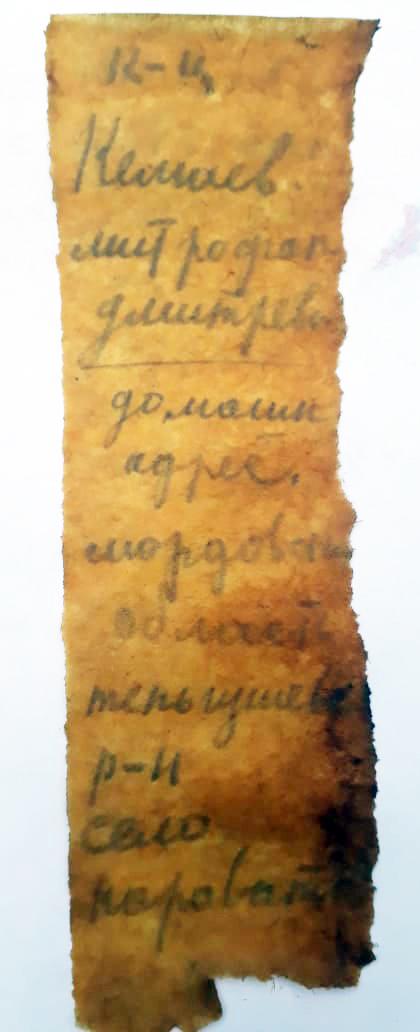 к-ц
Кемаев
митрофан
дмитрев
домашн
адрес.
мордовск
область
теньгушевск
р-н
село
нароват